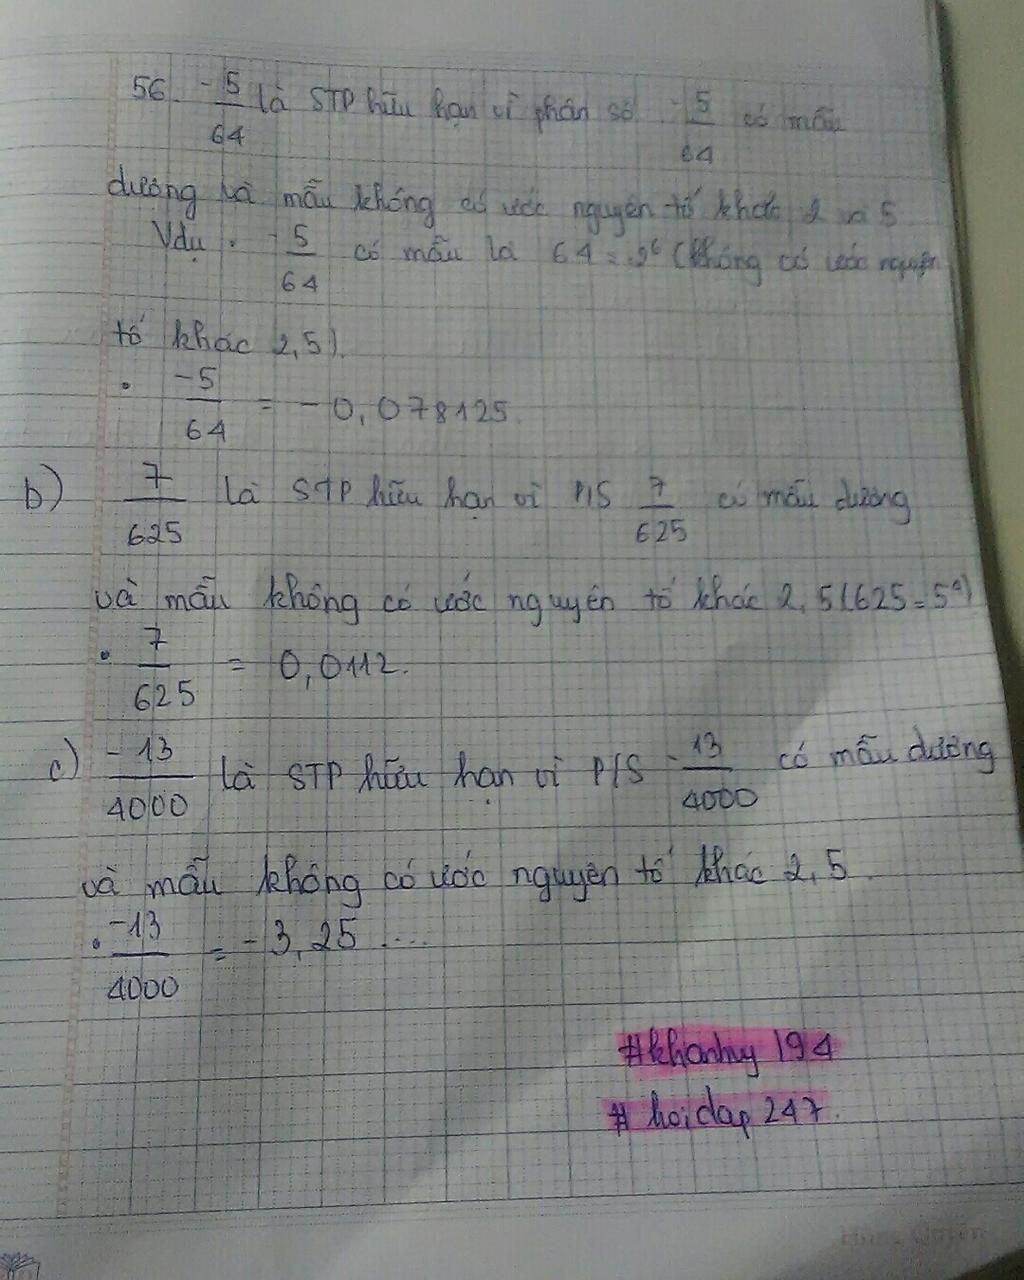 56. -5/64 là STP hữu hạn vì phân số -5/64 có mẫu
dương và mẫu không có ước nguyên tố khác 2 và 5
Vdụ . -5/64 có mẫu là 64 = 2⁶ (không có ước nguyên
tố khác 2,5).
• -5/64 = -0,078125.
b) 7/625 là STP hữu hạn vì P/S 7/625 có mẫu dương
và mẫu không có ước nguyên tố khác 2,5 (625 = 5⁴)
• 7/625 = 0,0112.
c) -13/4000 là STP hữu hạn vì P/S -13/4000 có mẫu dương
và mẫu không có ước nguyên tố khác 2,5.
• -13/4000 = -3,25 ....
#khanhuy 194
# hoidap 247.